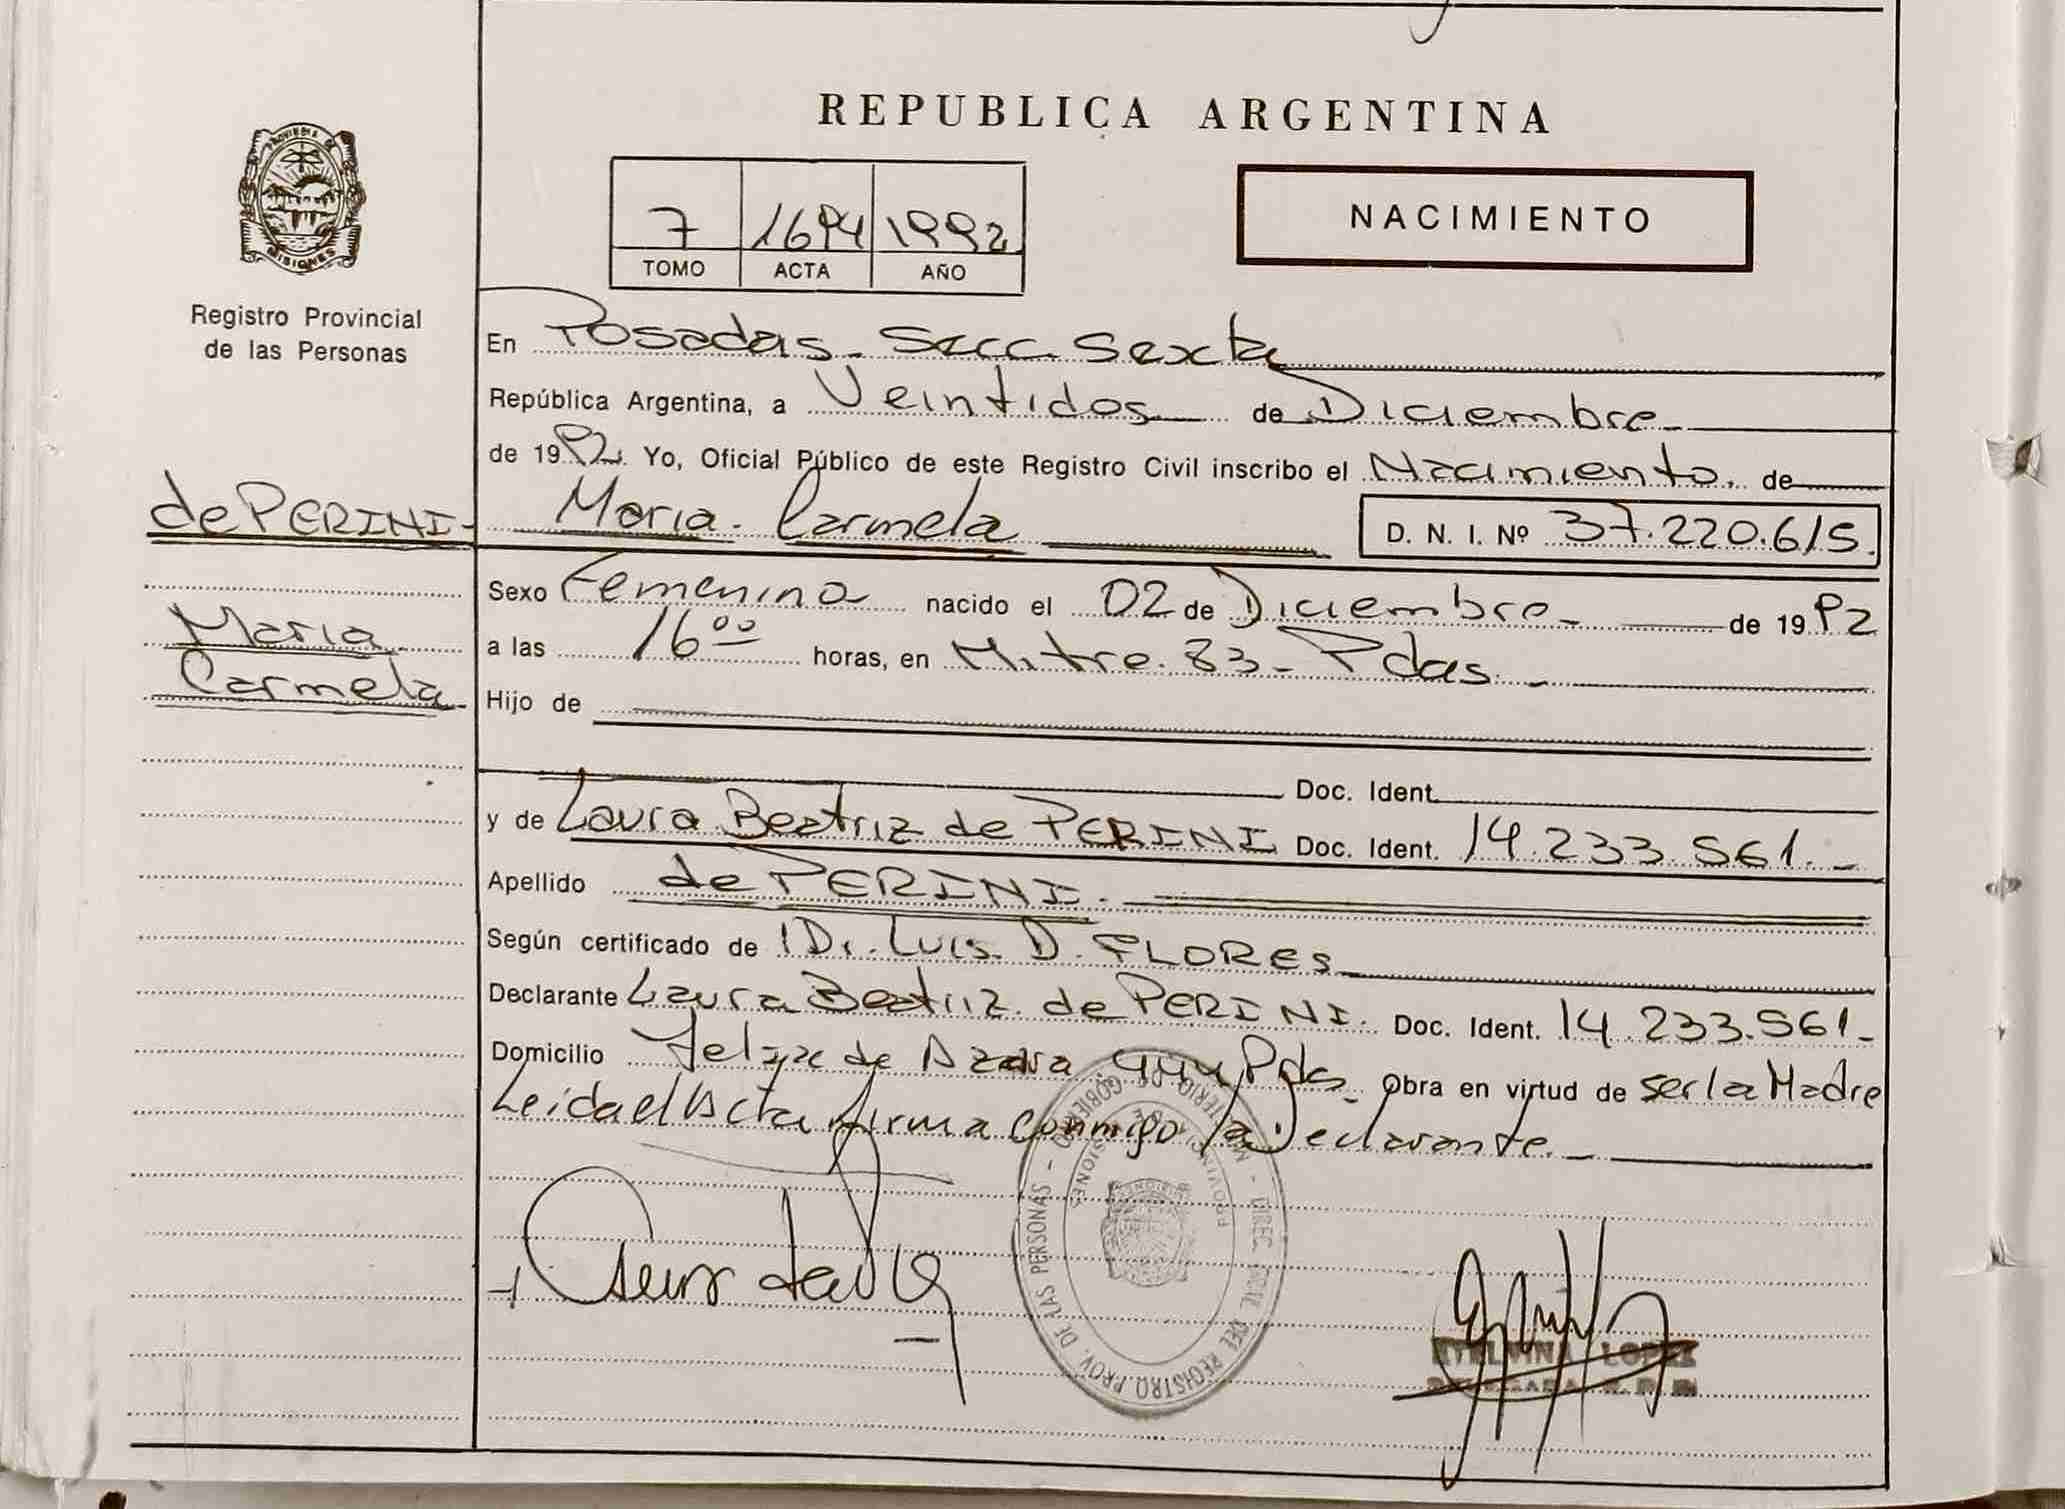 REPUBLICA ARGENTINA
PROVINCIA DE
MISIONES
Registro Provincial
de las Personas
7 1694 1992
TOMO ACTA AÑO
NACIMIENTO
En Posadas - Secc. Sexta
República Argentina, a Veintidos de Diciembre
de 1992. Yo, Oficial Público de este Registro Civil inscribo el Nacimiento. de
de PERINI - María - Carmela D. N. I. Nº 37.220.615.
María
Carmela
Sexo Femenino nacido el 02 de Diciembre - de 1992
a las 16⁰⁰ horas, en Mitre. 83 - Pdas. -
Hijo de
Doc. Ident.
y de Laura Beatriz de PERINI Doc. Ident. 14.233.561. -
Apellido de PERINI.
Según certificado de Dr. Luis. D. FLORES
Declarante Laura Beatriz de PERINI. Doc. Ident. 14.233.561 -
Domicilio Felix de Azara Pdas - Obra en virtud de ser la Madre
Leida el Acta firma conmigo la Declarante. -
DIREC. GRAL. DEL REGISTRO PROV. DE LAS PERSONAS - MINISTERIO DE GOBIERNO
PROVINCIA DE MISIONES
ETELVINA LOPEZ
DELEGADA